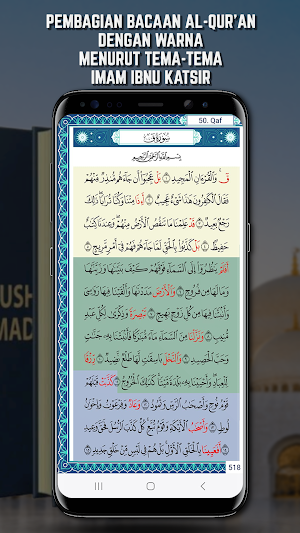 PEMBAGIAN BACAAN AL-QUR'AN
DENGAN WARNA
MENURUT TEMA-TEMA
IMAM IBNU KATSIR
50. Qaf
سُورَةُ ق
بِسْمِ اللَّهِ الرَّحْمَٰنِ الرَّحِيمِ
قٓ ۚ وَالْقُرْءَانِ الْمَجِيدِ ۝١ بَلْ عَجِبُوٓا۟ أَن جَآءَهُم مُّنذِرٌ مِّنْهُمْ
فَقَالَ الْكَٰفِرُونَ هَٰذَا شَىْءٌ عَجِيبٌ ۝٢ أَءِذَا مِتْنَا وَكُنَّا تُرَابًا ۖ ذَٰلِكَ
رَجْعٌۢ بَعِيدٌ ۝٣ قَدْ عَلِمْنَا مَا تَنقُصُ الْأَرْضُ مِنْهُمْ ۖ وَعِندَنَا كِتَٰبٌ
حَفِيظٌۢ ۝٤ بَلْ كَذَّبُوا۟ بِالْحَقِّ لَمَّا جَآءَهُمْ فَهُمْ فِىٓ أَمْرٍ مَّرِيجٍ ۝٥
أَفَلَمْ يَنظُرُوٓا۟ إِلَى السَّمَآءِ فَوْقَهُمْ كَيْفَ بَنَيْنَٰهَا وَزَيَّنَّٰهَا
وَمَا لَهَا مِن فُرُوجٍ ۝٦ وَالْأَرْضَ مَدَدْنَٰهَا وَأَلْقَيْنَا فِيهَا رَوَٰسِىَ
وَأَنۢبَتْنَا فِيهَا مِن كُلِّ زَوْجٍۭ بَهِيجٍ ۝٧ تَبْصِرَةً وَذِكْرَىٰ لِكُلِّ عَبْدٍ
مُّنِيبٍ ۝٨ وَنَزَّلْنَا مِنَ السَّمَآءِ مَآءً مُّبَٰرَكًا فَأَنۢبَتْنَا بِهِۦ جَنَّٰتٍ
وَحَبَّ الْحَصِيدِ ۝٩ وَالنَّخْلَ بَاسِقَٰتٍ لَّهَا طَلْعٌ نَّضِيدٌ ۝١٠ رِّزْقًا
لِّلْعِبَادِ ۖ وَأَحْيَيْنَا بِهِۦ بَلْدَةً مَّيْتًا ۚ كَذَٰلِكَ الْخُرُوجُ ۝١١ كَذَّبَتْ قَبْلَهُمْ
قَوْمُ نُوحٍ وَأَصْحَٰبُ الرَّسِّ وَثَمُودُ ۝١٢ وَعَادٌ وَفِرْعَوْنُ وَإِخْوَٰنُ
لُوطٍ ۝١٣ وَأَصْحَٰبُ الْأَيْكَةِ وَقَوْمُ تُبَّعٍ ۚ كُلٌّ كَذَّبَ الرُّسُلَ فَحَقَّ وَعِيدِ
۝١٤ أَفَعَيِينَا بِالْخَلْقِ الْأَوَّلِ ۚ بَلْ هُمْ فِى لَبْسٍ مِّنْ خَلْقٍ جَدِيدٍ ۝١٥
518